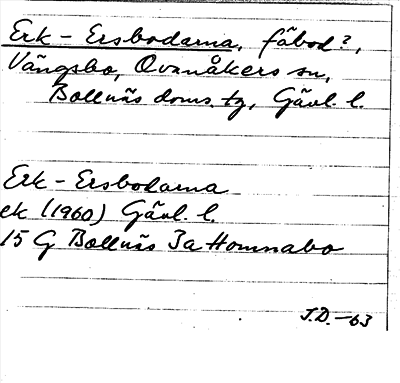 Erk-Ersbodarna, fäbod?,
Vängsbo, Ovanåkers sn,
Bollnäs doms. tg, Gävl. l.
Erk-Ersbodarna
ek (1960) Gävl. l.
15 G Bollnäs 3a Homnabo
J.D.-63